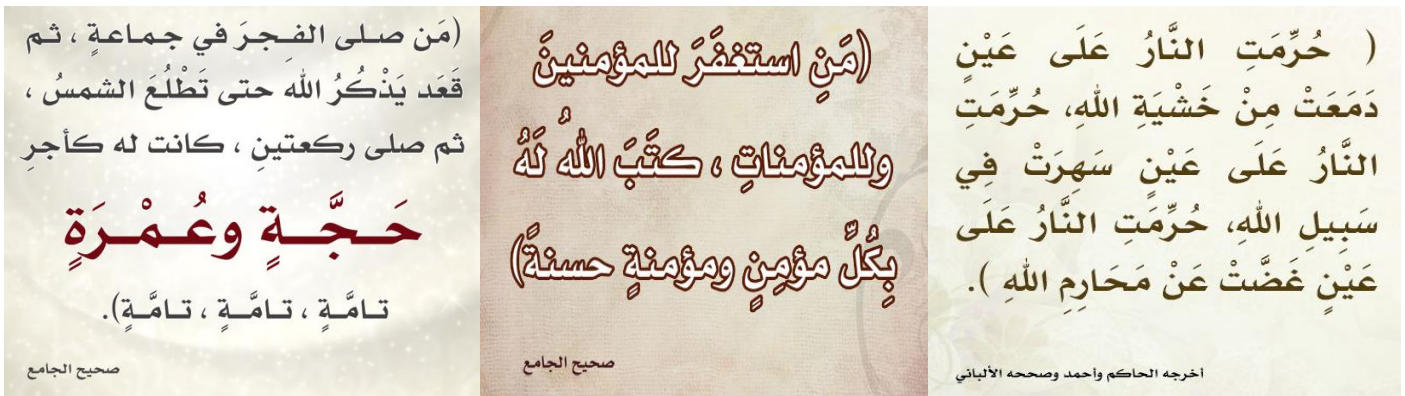 ( حُرِّمَتِ النَّارُ عَلَى عَيْنٍ
دَمَعَتْ مِنْ خَشْيَةِ اللهِ، حُرِّمَتِ
النَّارُ عَلَى عَيْنٍ سَهِرَتْ فِي
سَبِيلِ اللهِ، حُرِّمَتِ النَّارُ عَلَى
عَيْنٍ غَضَّتْ عَنْ مَحَارِمِ اللهِ ).
أخرجه الحاكم وأحمد وصححه الألباني
(مَنِ استغفَرَ للمؤمنينَ
وللمؤمناتِ ، كتَبَ اللهُ لَهُ
بِكُلِّ مؤمِنٍ ومؤمنةٍ حسنةً)
صحيح الجامع
(مَن صلى الفجرَ في جماعةٍ ، ثم
قَعَد يَذْكُرُ الله حتى تَطْلُعَ الشمسُ ،
ثم صلى ركعتينِ ، كانت له كأجرِ
حَجَّةٍ وعُمْرَةٍ
تامَّةٍ ، تامَّةٍ ، تامَّةٍ).
صحيح الجامع